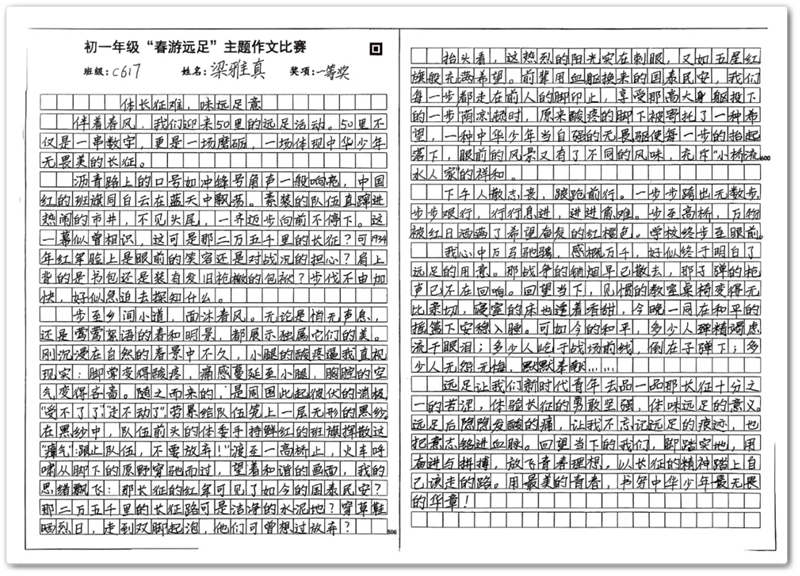 初一年级“春游远足”主题作文比赛
班级：C617 姓名：梁雅真 奖项：一等奖
体长征难，味远足意
伴着春风，我们迎来50里的远足活动。50里不
仅是一串数字，更是一场磨砺，一场体现中华少年
无畏美的长征。
沥青路上的口号如冲锋号角声一般响亮，中国
红的班旗同白云在蓝天中飘荡。素装的队伍直蹿进
热闹的市井，不见头尾，一齐迈步向前不停下。这
一幕似曾相识，这可是那二万五千里的长征？可1934
年红军脸上是眼前的笑容还是对战况的担心？肩上
背的是书包还是装有发旧枪械的包袱？步伐不由加
快，好似急迫去探知什么。
步至乡间小道，面沐春风。无论是悄无声息，
还是莺莺絮语的春和明景，都展示独属它们的美。
刚沉浸在自然的春景中不久，小腿的酸疼逼我直视
现实：脚掌变得酸疼，痛感蔓延至小腿，胸腔的空
气变得吝啬。随之而来的，是周围此起彼伏的消极
“受不了了”“走不动了”劳累给队伍笼上一层无形的黑纱
在黑纱中，队伍前头的体委手持鲜红的班旗挥散这
“瘴气”：“跟上队伍，不要放弃！”渡至一高桥上，火车呼
啸从脚下的原野穿驰而过，望着和谐的画面，我的
思绪飘飞：那长征的红军可见了如今的国泰民安？
那二万五千里的长征路可是洁净的水泥地？穿草鞋
晒烈日，走到双脚起泡，他们可曾想过放弃？
506
抬头看，这热烈的阳光实在刺眼，又如五星红
旗般充满希望。前辈用血躯换来的国泰民安，我们
每一步都走在前人的脚印上，享受那高大身躯投下
的一步南凉颇时，原来酸疼的脚下被寄托了一种希
望，一种中华少年当自强的无畏驱使每一步的抬起
落下，眼前的风景又有了不同的风味，充斥“小桥流
600
水人家”的祥和。
下午人散志丧，踉跄前行。一步步踏出无数步，
步步艰行，行行息进，进进奋难。步至高桥，万物
被红日洒满了希望奋发的红橙色。学校终步至眼前。
我心中万马驰骋，感慨万千，好似终于明白了
远足的用意。那战争的硝烟早已散去，那子弹的枪
声已不在回响。回望当下，见惯的教室桌椅变得无
比亲切，寝室的床也透着香甜，今晚一同在和平的
摇篮下安稳入睡。可如今的和平，多少人精竭虑
流干眼泪；多少人屹于战场前线，倒在子弹下；多
少人无怨无悔，默默奉献……
远足让我们新时代青年去品一品那长征十分之
一的苦涩，体验长征的勇敢坚强，体味远足的意义。
远足后隐隐发酸的痛，让我不忘记远足的痕迹，也
把意志铭进血脉。回望当下的我们，脚踏实地，用
奋进与拼搏，放飞青春理想。以长征的精神踏上自
己该走的路。用最美的青春，书写中华少年最无畏
的华章！